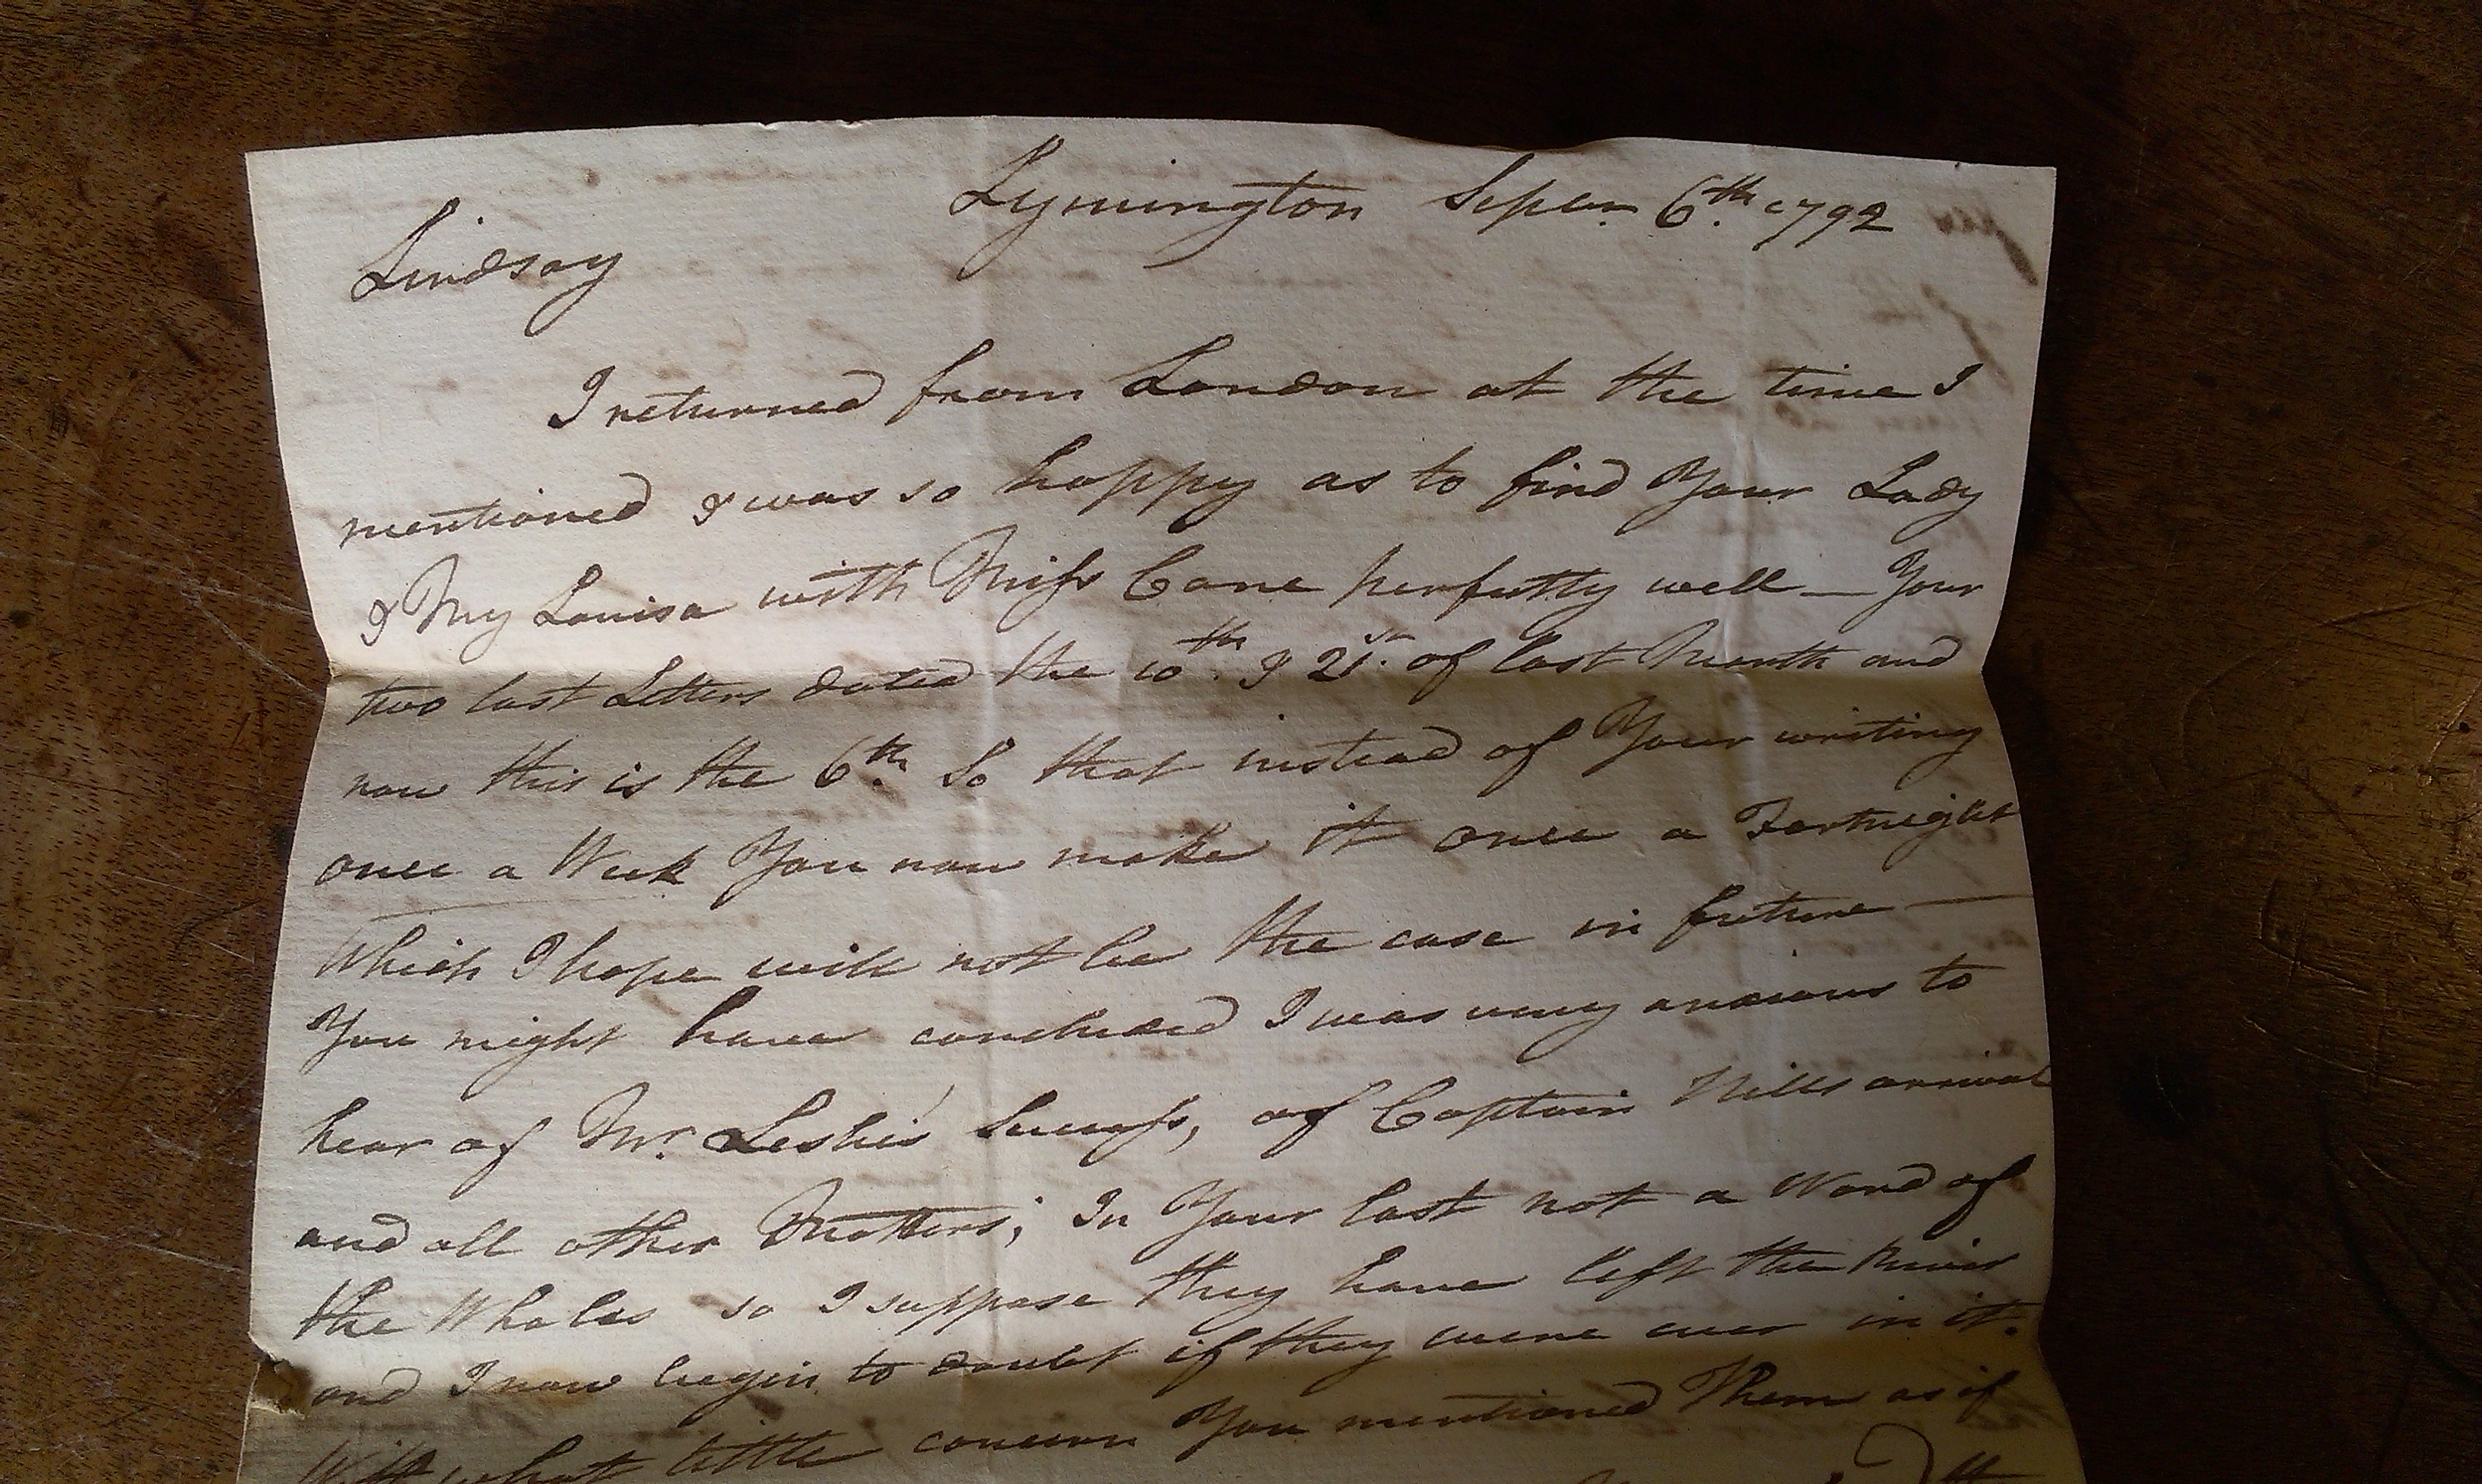 Lymington Septem. 6th. 1792
Lindsay
I returned from London at the time I
mentioned & was so happy as to find Your Lady
& My Louisa with Miss Cane perfectly well — Your
two last Letters dated the 10th. & 21st. of last Month and
now this is the 6th. So that instead of Your writing
once a Week You now make it once a Fortnight
Which I hope will not be the case in future —
You might have concluded I was very anxious to
hear of Mr. Leslie's Success, of Captain Hills arrival
and all other Matters; In Your last not a Word of
the Whales so I suppose they have left the River
and I now begin to doubt if they were ever in it.
With what little concern You mentioned Them as if